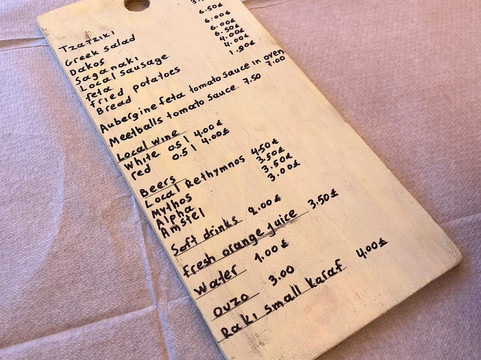 Tzatziki
Greek salad 6.50€
Dakos 6.00€
Saganaki 6.00€
Local sausage 6.50€
feta 4.00€
fried potatoes 4.00€
Bread
Aubergine feta tomato sauce in oven 7.00
Meetballs tomato sauce 7.50
Local wine
white 0.5 l 4.00€
red 0.5 l 4.00€
Beers
Local Rethymnos 4.50€
Mythos 3.50€
Alpha 3.50€
Amstel 3.00€
Soft drinks 2.00€
fresh orange juice 3.50€
Water 1.00€
ouzo 3.00
Raki small karaf 4.00€